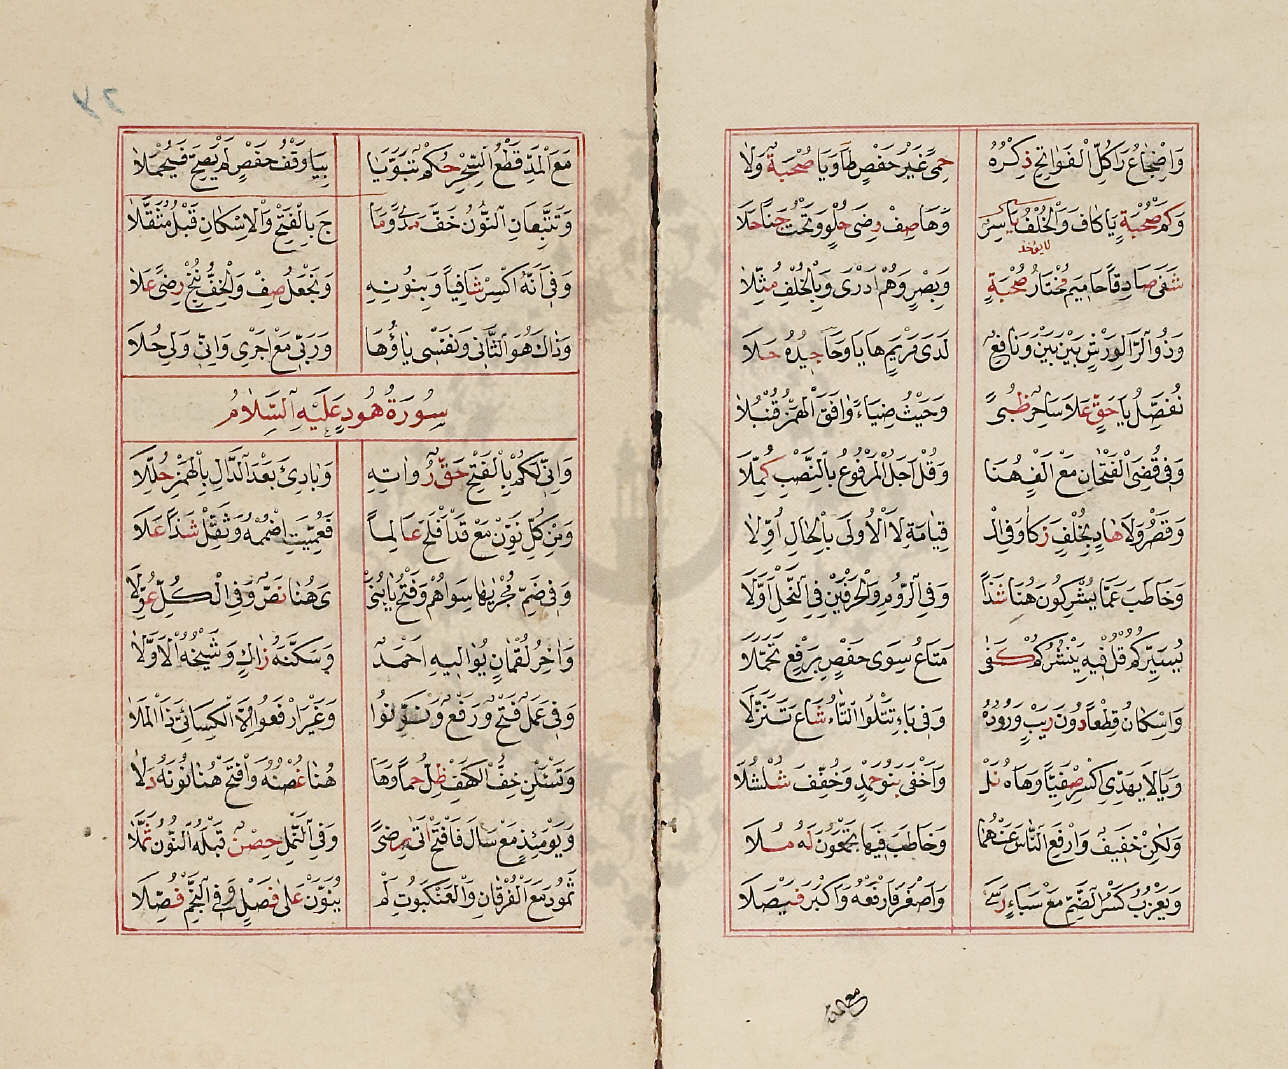 وَاِضْجَاعُ رَاكُلِّ الْفَوَاتِحِ ذِكْرُهُ حِمًى غَيْرُ حَفْصٍ طَاوَيَا صُحْبَةٌ وَلَا
وَكَمْ صُحْبَةٍ يَا كَافَ وَالْخُلْفُ يَاسِرٌ وَهَا صِفْ رِضًى حُلْوٍ وَتَحْتُ جَنًا حَلَا
شَفَى صَادِقًا حَامِيمُ مُخْتَارُ صُحْبَةٍ وَبَصْرٍ وَهُمْ اَدْرَى وَبِالْخُلْفِ مُثِّلَا
وَذُو الرَّا لِوَرْشٍ بَيْنَ بَيْنَ وَنَافِعٌ لَدَى مَرْيَمٍ هَا يَا وَحَا جِيدُهُ حَلَا
نُفَصِّلُ يَا حَقٍّ عُلَا سَاحِرٌ ظُبًى وَحَيْثُ ضِيَاءً وَافَقَ الْهَمْزُ قُنْبُلَا
وَفِى قُضِىَ الْفَتْحَانِ مَعْ اَلِفٍ هُنَا وَقُلْ اَجَلُ الْمَرْفُوعُ بِالنَّصْبِ كُمِّلَا
وَقَصْرُ وَلَا هَادٍ بِخُلْفٍ زَكَا وَفِى الْـ قِيَامَةِ لَا الْاُولَى بِالْحَالِ اُوِّلَا
وَخَاطَبَ عَمَّا يُشْرِكُونَ هُنَا شَذًا وَفِى الرُّومِ وَالْحَرْفَيْنِ فِى النَّحْلِ اَوَّلَا
يُسَيِّرُكُمْ قُلْ فِيهِ يَنْشُرُكُمْ كَفَى مَتَاعُ سِوَى حَفْصٍ بِرَفْعٍ تَحَمَّلَا
وَاِسْكَانُ قِطْعًا دُونَ رَيْبٍ وُرُودُهُ وَفِى بَاءِ تَبْلُوا التَّاءُ شَاعَ تَنَزُّلَا
وَيَا لَا يَهِدِّى اكْسِرْ صَفِيًّا وَهَاهُ نَلْ وَاَخْفَى بَنُو حَمْدٍ وَخُفِّفَ شُلْشُلَا
وَلَكِنْ خَفِيفٌ وَارْفَعِ النَّاسَ عَنْهُمَا وَخَاطَبَ فِيهَا تَجْمَعُونَ لَهُ مُلَا
وَيَعْزُبُ كَسْرُ الضَّمِّ مَعْ سَبَاءٍ رَسَى وَاَصْغَرَ فَارْفَعْهُ وَاَكْبَرَ فَيْصَلَا
مَعَ الْمَدِّ قَطْعُ السِّحْرِ حُكْمٌ تَبَوَّيَا بِيَا وَقْفُ حَفْصٍ لَمْ يَصِحَّ فَيُحْمَلَا
وَتَتَّبِعَانِ النُّونُ خَفَّ مَدًى وَمَا جَ بِالْفَتْحِ وَالْاِسْكَانِ قَبْلُ مُثَقَّلَا
وَفِى اَنَّهُ اكْسِرْ شَافِيًا وَبِنُونِهِ وَنَجْعَلُ صِفْ وَالْخِفُّ نُنْجِ رِضًى عَلَا
وَذَاكَ هُوَ الثَّانِى وَنَفْسِى يَاؤُهَا وَرَبِّى مَعْ اَجْرِى وَاِنِّى وَلِى حُلَا
سُورَةُ هُودٍ عَلَيْهِ السَّلَامُ
وَاِنِّى لَكُمْ بِالْفَتْحِ حَقُّ رُوَاتِهِ وَبَادِئَ بَعْدَ الدَّالِ بِالْهَمْزِ حُلِّلَا
وَمِنْ كُلِّ نَوِّنْ مَعْ قَدْ اَفْلَحَ عَالِمًا فَعُمِّيَتِ اضْمُمْهُ وَثَقِّلْ شَذًا عَلَا
وَفِى ضَمِّ مُجْرَاهَا سِوَاهُمْ وَفَتْحُ يَا بُنَىِّ هُنَا نَصٌّ وَفِى الْكُلِّ عُوِّلَا
وَاٰخِرُ لُقْمَانٍ يُوَالِيهِ اَحْمَدٌ وَسَكَّنَهُ زَاكٍ وَشَيْخُهُ الْاَوَّلَا
وَفِى عَمَلٌ فَتْحٌ وَرَفْعٌ وَنَوِّنُوا وَغَيْرَ ارْفَعُوا اِلَّا الْكِسَائِىَّ ذَا الْمَلَا
وَتَسْئَلْنِ خِفُّ الْكَهْفِ ظِلُّ حِمًا وَهَا هُنَا غُصْنُهُ وَافْتَحْ هُنَا نُونَهُ دَلَا
وَيَوْمَئِذٍ مَعْ سَالَ فَافْتَحْ اَتَى رِضًى وَفِى النَّمْلِ حِصْنٌ قَبْلَهُ النُّونُ ثُمِّلَا
ثَمُودَ مَعَ الْفُرْقَانِ وَالْعَنْكَبُوتِ لَمْ يُنَوَّنْ عَلَى فَصْلٍ وَفِى النَّجْمِ فُصِّلَا
مع المد